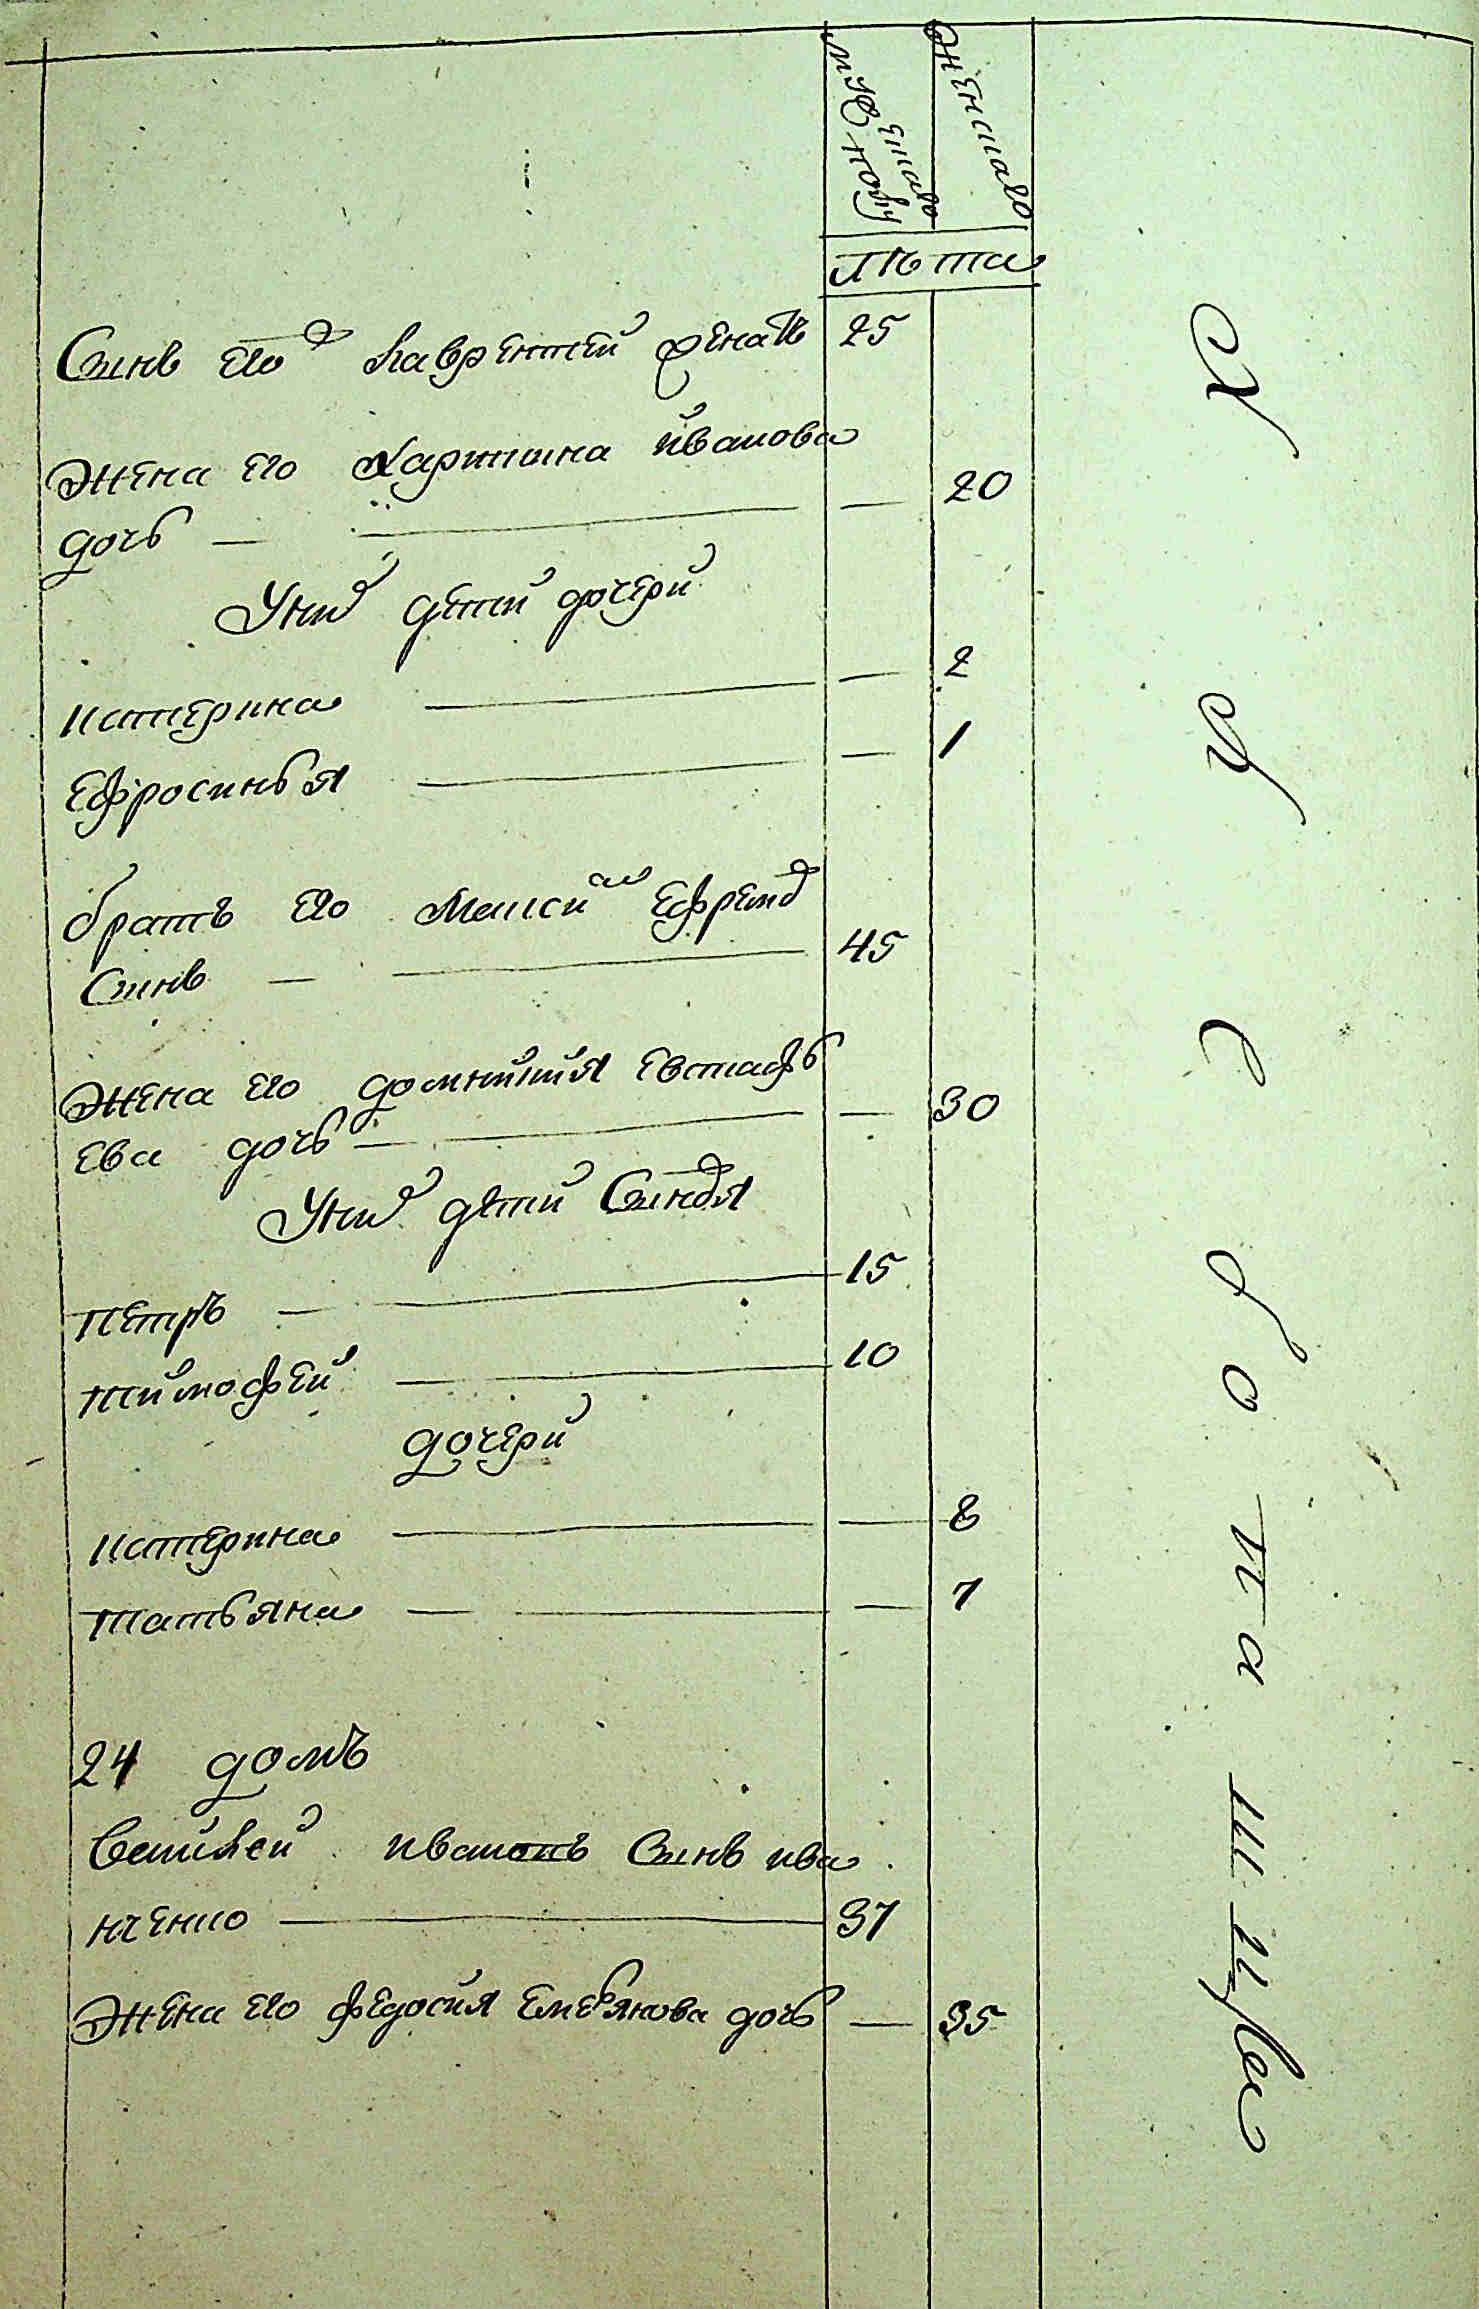 мужескаго
женскаго
лѣта
Сынъ его Лаврентей женатъ 25
жена его Харитина Иванова
дочь — — 20
У них дети дочери
Катерина — — 2
Ефросинья — — 1
братъ его Моисей Ефремов
Сынъ — 45
жена его домникия Евстафь
ева дочь — — 30
У них дѣти Сыновья
Петръ — 15
тимофей — 10
дочери
Катерина — — 8
татьяна — — 7
24 домъ
Василей ивановъ Сынъ ива
нченко — 37
жена его федосия Емельянова дочь — 35